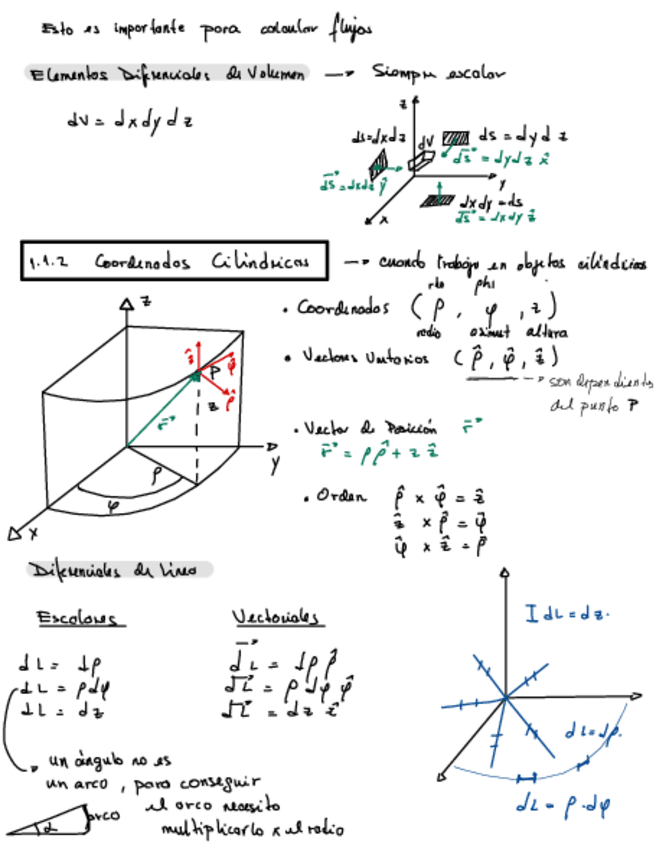 Esto es importante para calcular flujos
Elementos Diferenciales de Volumen → Siempre escalar
dV = dx dy dz
z
ds=dxdz
dV
ds = dy dz
d⃗s = dydz x̂
d⃗s = dxdz ŷ
y
dxdy = ds
d⃗s = dxdy ẑ
x
1.1.2 Coordenadas Cilíndricas → cuando trabajo en objetos cilíndricos
rho phi
• Coordenadas (ρ, φ, z)
radio azimut altura
• Vectores Unitarios (ρ̂, φ̂, ẑ)
→ son dependientes
del punto P
z
ẑ
φ̂
P
ρ̂
z
r⃗
y
ρ
φ
x
• Vector de Posición r⃗
r⃗ = ρρ̂ + z ẑ
• Orden ρ̂ × φ̂ = ẑ
ẑ × ρ̂ = φ̂
φ̂ × ẑ = ρ̂
Diferenciales de Línea
Escalares Vectoriales
dL = dρ d⃗L = dρ ρ̂
dL = ρdφ d⃗L = ρ dφ φ̂
dL = dz d⃗L = dz ẑ
I dL = dz.
dL = dρ.
dL = ρ·dφ
un ángulo no es
un arco, para conseguir
el arco necesito
multiplicarlo x el radio
arco
α